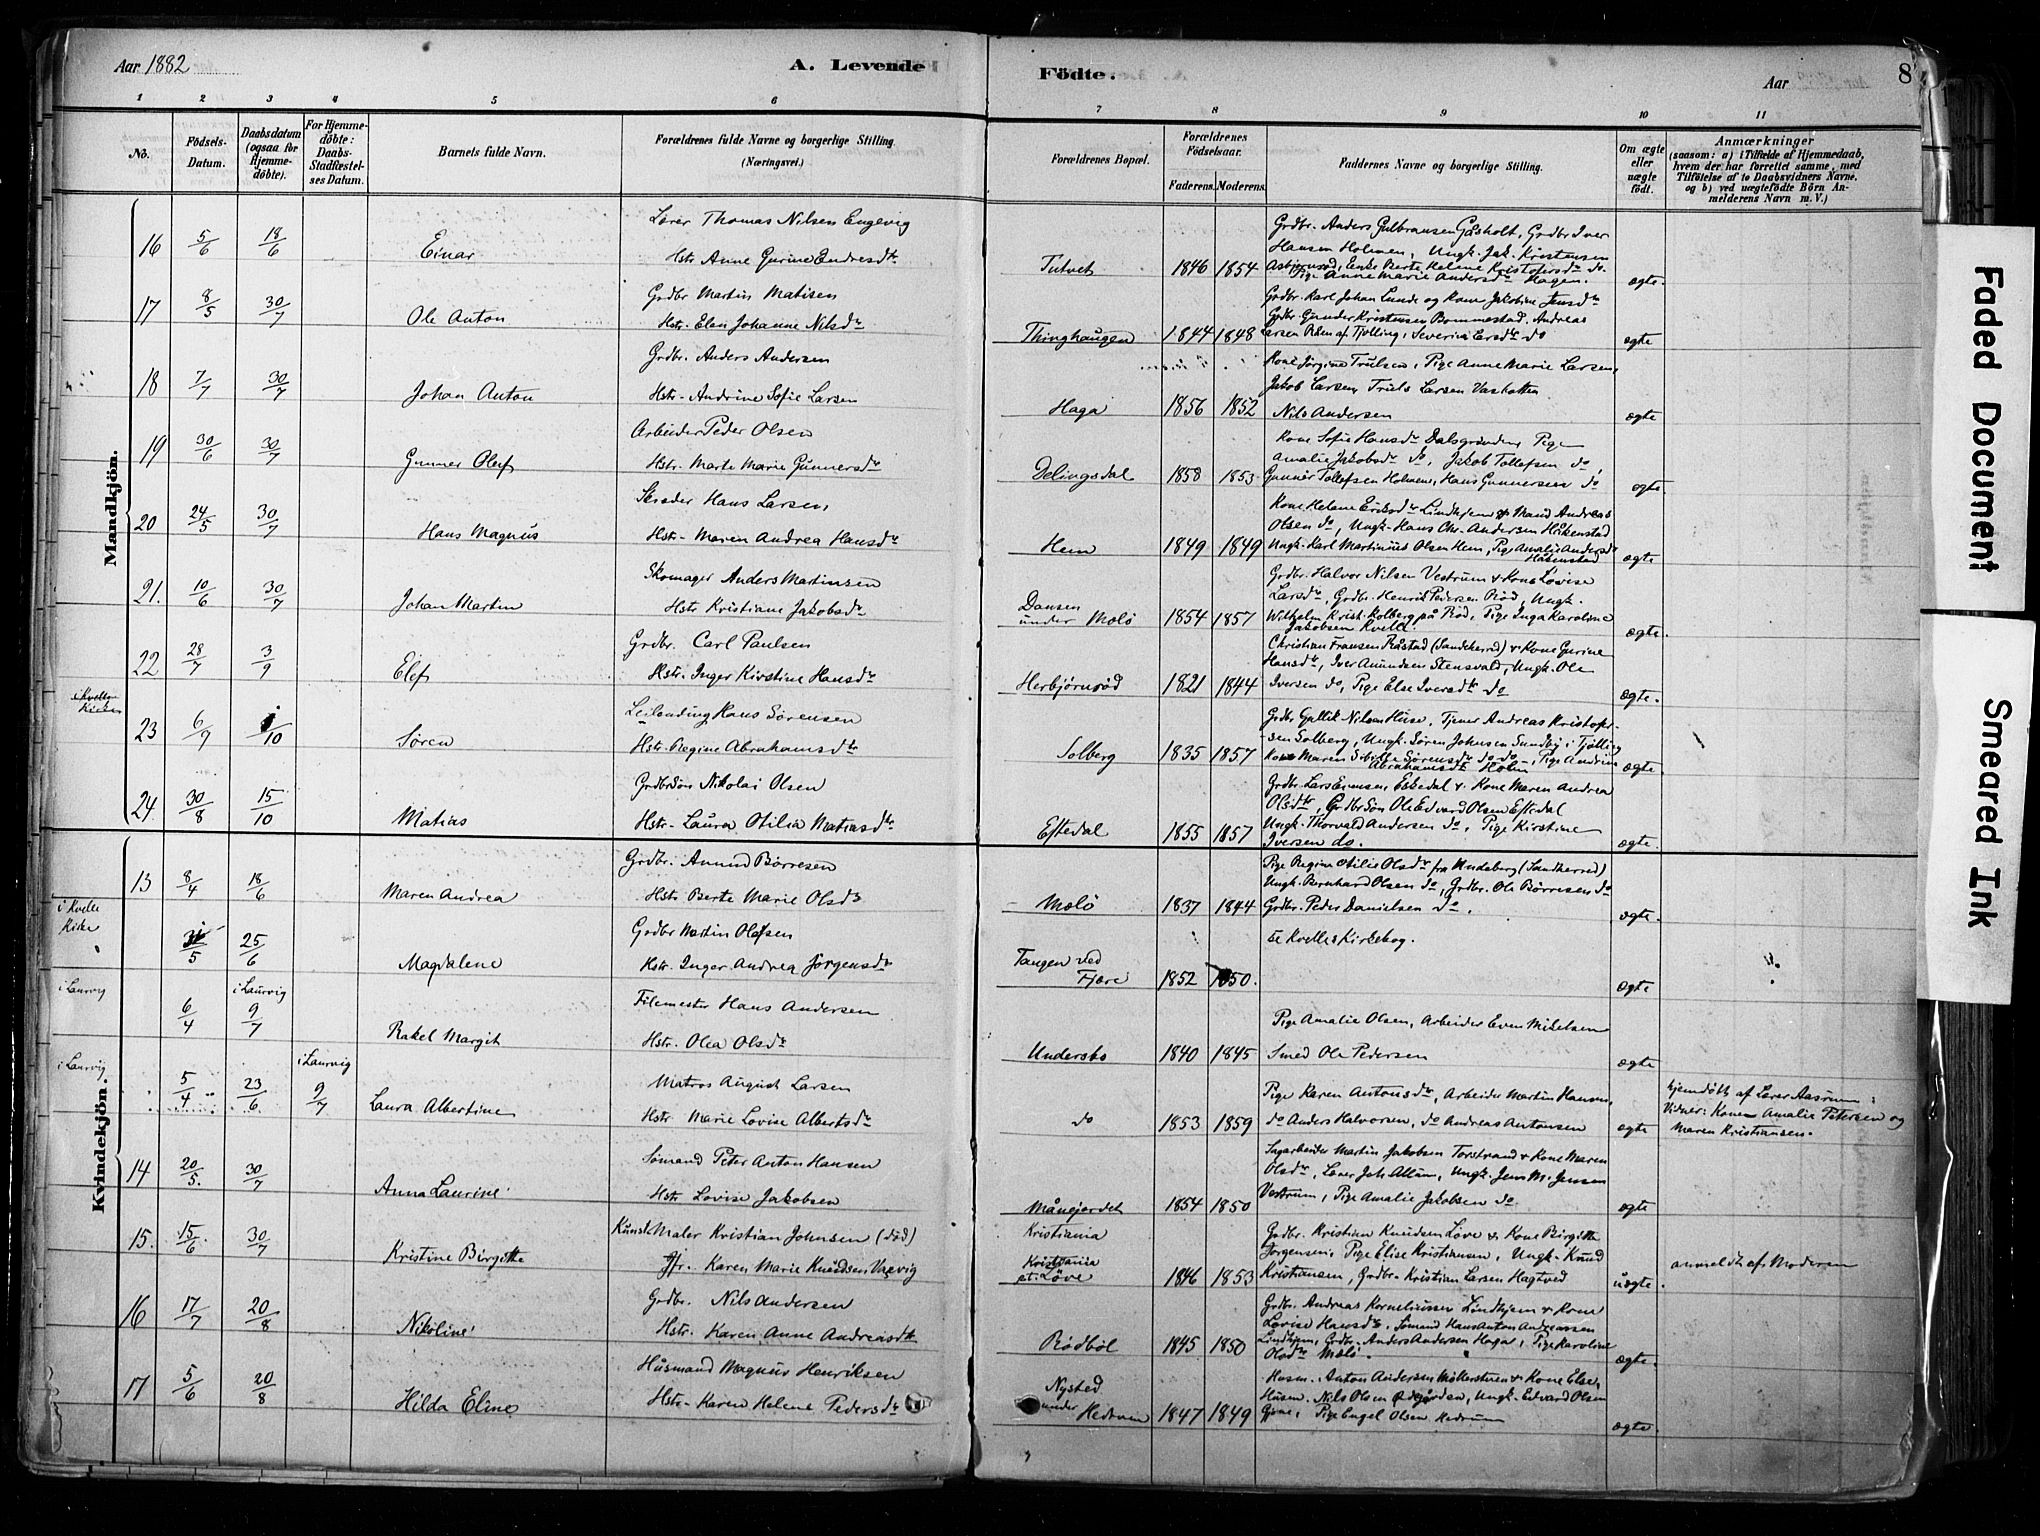 Aar 1882
A. Levende Födte.
Aar
8
1 2 3 4 5 6 7 8 9 10 11
No.
Födsels-Datum.
Daabsdatum (ogsaa for Hjemme-döbte).
For Hjemme-döbte: Daabs-Stadfæstel-ses Datum.
Barnets fulde Navn.
Forældrenes fulde Navne og borgerlige Stilling. (Næringsvei.)
Forældrenes Bopæl.
Forældrenes Födselsaar.
Faderens. Moderens.
Faddernes Navne og borgerlige Stilling.
Om ægte eller uægte födt.
Anmærkninger
(saasom: a) i Tilfælde af Hjemmedaab, hvem der har forrettet samme, med Tilföielse af to Daabsvidners Navne, og b) ved uægtefödte Börn An-melderens Navn m. V.)
Mandkjön.
16 5/6 18/6 Einar
Lærer Thomas Nilsen Engevig
Hstr Anne Gurine Endresdtr
Tutvet 1846 1854
Grdbr. Anders Gulbransen Gåsholt, Grdbr Iver
Hansen Holmen, Ungk. Jak. Kristensen
Asbjørnrød, Enke Berte Helene Kristofersdtr do.
Pige Anne Marie Andersdtr Hagen.
ægte.
17 8/5 30/7 Ole Anton
Grdbr Martin Matisen
Hstr. Elen Johanne Nilsdtr
Thinghaugen 1844 1848
Grdbr. Karl Johan Lunde og Kone Jakobine Jensdtr
Grdbr. Gunder Kristensen Bommestad, Andreas
Larsen af Tjølling, Severine do
ægte
18 7/7 30/7 Johan Anton
Grdbr. Anders Andersen
Hstr. Andrine Sofie Larsen
Haga 1856 1852
Kone Jørgine Trulsen, Pige Anne Marie Larsen,
Jakob Larsen, Truls Larsen Vasbotten
Nils Andersen
ægte
19 30/6 30/7 Gunner Olef
Arbeider Peder Olsen
Hstr. Marte Marie Gunnersdtr
Delingsdal 1858 1853
Kone Sofie Hansdtr Dalsgrinden, Pige
Amalie Jakobsdtr do, Jakob Tollefsen do,
Gunner Tollefsen Holmen, Hans Gunnersen do
ægte.
20 24/5 30/7 Hans Magnus
Skræder Hans Larsen,
Hstr. Maren Andrea Hansdtr
Hem 1849 1849
Kone Helene Eriksdtr Lindhjem & Mand Andreas
Olsen do, Ungk. Hans Chr. Andersen Håkenstad
Ungk. Karl Martinius Olsen Hem, Pige Amalie Andersdtr
Håkenstad
ægte
21. 10/6 30/7 Johan Martin
Skomager Anders Martinsen
Hstr Kristiane Jakobsdtr
Dansen under Mælø 1854 1857
Grdbr. Halvor Nilsen Vestrum & Kone Lovise
Larsdtr, Grdbr. Henrik Pedersen Rød, Ungk.
Wilhelm Krist. Kolberg på Rød, Pige Inga Karoline
Jakobsen Kvelle.
ægte.
22 28/7 3/9 Elef
Grdbr. Carl Paulsen
Hstr. Inger Kirstine Hansdtr
Herbjørnrød 1821 1844
Christian Fransen Råstad (Sandeherred) & Kone Gurine
Hansdtr, Iver Amundsen Stensvald, Ungk. Ole
Iversen do, Pige Else Iversdtr do
ægte.
i Kvelle Kirke
23 6/9 1/10 Søren
Leilending Hans Sørensen
Hstr. Regine Abrahamsdtr
Solberg 1835 1857
Grdbr Gullik Nilsen Huse, Tjener Andreas Kristofer-
sen Solberg, Ungk. Søren Johnsen Sundby i Tjølling
Kone Maren Sørensdtr do do, Pige Andrine
Abrahamsdtr Holm
ægte.
24. 30/8 15/10 Matias
Grdbrsøn Nikolai Olsen
Hstr. Laura Otilia Matiasdtr
Eftedal 1855 1857
Grdbr. Lars Eftedal & Kone Maren Andrea
Olsdtr, Grdbr Søn Ole Edvard Olsen Eftedal
Ungk. Thorvald Andersen do, Pige Kirstine
Iversen do.
ægte.
Kvindekjön.
13 8/4 18/6 Maren Andrea
Grdbr. Amund Børresen
Hstr Berte Marie Olsdtr
Mælø 1837 1844
Pige Regine Otilie Olsdtr fra Undeberg (Sandherred)
Ungk. Bernhard Olsen do, Grdbr. Ole Børresen do
Grdbr. Peder Danielsen do.
ægte.
i Kvelle Kirke
31/5 25/6 Magdalene
Grdbr Martin Olafsen
Hstr. Inger Andrea Jørgensdtr
Tangen ved Fjære 1852 1850.
se Kvelles Kirkebog.
ægte
i Laurvig
6/4 i Laurvig 9/7 Rakel Margit
Filemester Hans Andersen
Hstr. Olea Olsdtr
Undersbo 1840 1845
Pige Amalie Olsen, Arbeider Even Mikelsen
Smed Ole Pedersen
ægte
i Laurvig
5/4 23/6 i Laurvig 9/7 Laura Albertine
Matros August Larsen
Hstr. Marie Lovise Albertsdtr
do 1853 1859
Pige Karen Antonsdtr, Arbeider Martin Hansen,
do Anders Halvorsen, do Andreas Antonsen
ægte
hjemdøbt af Lærer Aasrum:
Vidner: Konen Amalie Petersen og
Maren Kristiansen.
14 20/5. 30/7 Anna Laurine
Sømand Peter Anton Hansen
Hstr Lovise Jakobsen
Månejordet 1854 1850
Sagarbeider Martin Jakobsen Torstrand & Kone Maren
Olsdtr, Lærer Joh. Allum, Ungk. Jens M. Jensen
Vestrum, Pige Amalie Jakobsen do
ægte
15. 15/6. 30/7 Kristine Birgitte
Kunstmaler Kristian Johnsen (død)
Jfr. Karen Marie Knudsen Varvig
Kristiania
Kristiania
pt. Løve 1846 1853
Grdbr. Kristian Knudsen Løve & Kone Birgitte
Jørgensen, Pige Elise Kristiansen, Ungk. Knud
Kristiansen, Grdbr. Kristian Larsen Hagtved
uægte.
anmeldt af Moderen
16 17/7 20/8 Nikoline
Grdbr. Nils Andersen
Hstr. Karen Anne Andreasdtr
Rødbøl 1845 1850
Grdbr. Andreas Korneliussen Lindhjem & Kone
Lovise Hansdtr, Sømand Hans Anton Andreassen
Lindhjem, Grdbr. Anders Andersen Haga, Pige Karoline
Olsdtr Mælø
ægte.
17 5/6 20/8 Hilda Eline
Husmand Magnus Henriksen
Hstr. Karen Helene Pedersdtr
Nysted under Hedrum 1847 1849
Husm. Anton Andersen Møllerstuen & Kone Else,
Husm. Nils Olsen, Ungk. Edvard Olsen
Gjone, Pige Engel Olsen Hedrum
ægte.
Faded Document
Smeared Ink